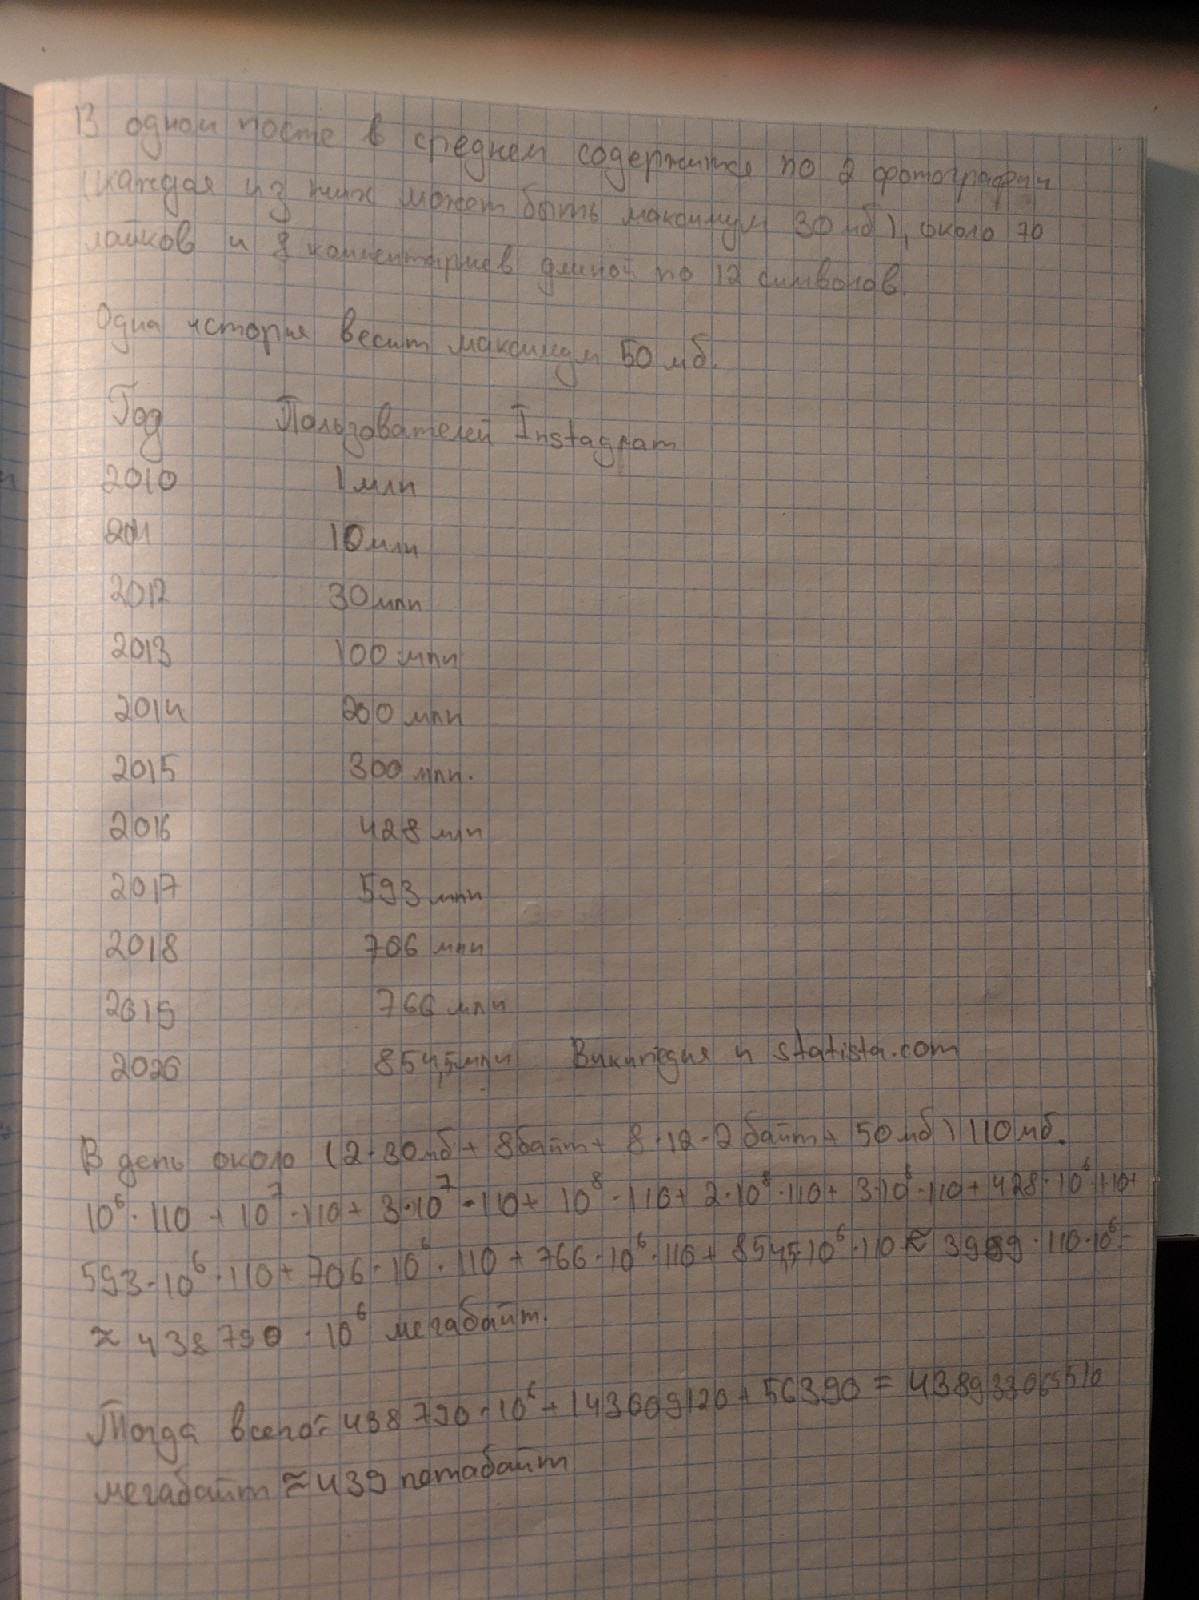 В одном посте в среднем содержится по 2 фотографии
(каждая из них может быть максимум 30 мб), около 70
лайков и 8 комментариев длиной по 12 символов.
Одна история весит максимум 50 мб.
Год Пользователей Instagram
2010 1 млн
2011 10 млн
2012 30 млн
2013 100 млн
2014 200 млн
2015 300 млн.
2016 428 млн
2017 593 млн
2018 706 млн
2019 766 млн
2020 854,5 млн Википедия и statista.com
В день около (2·30мб + 8байт + 8·12·2байт + 50мб) 110мб.
10⁶·110 + 10⁷·110 + 3·10⁷·110 + 10⁸·110 + 2·10⁸·110 + 3·10⁸·110 + 428·10⁶·110+
593·10⁶·110 + 706·10⁶·110 + 766·10⁶·110 + 854,5·10⁶·110 ≈ 3989·110·10⁶=
≈ 438790·10⁶ мегабайт.
Тогда всего = 438790·10⁶ + 143009120 + 56390 = 438933065510
мегабайт ≈ 439 петабайт